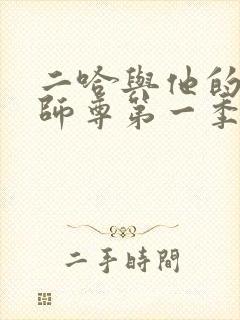 二哈與他的
師尊第一季
二手時間